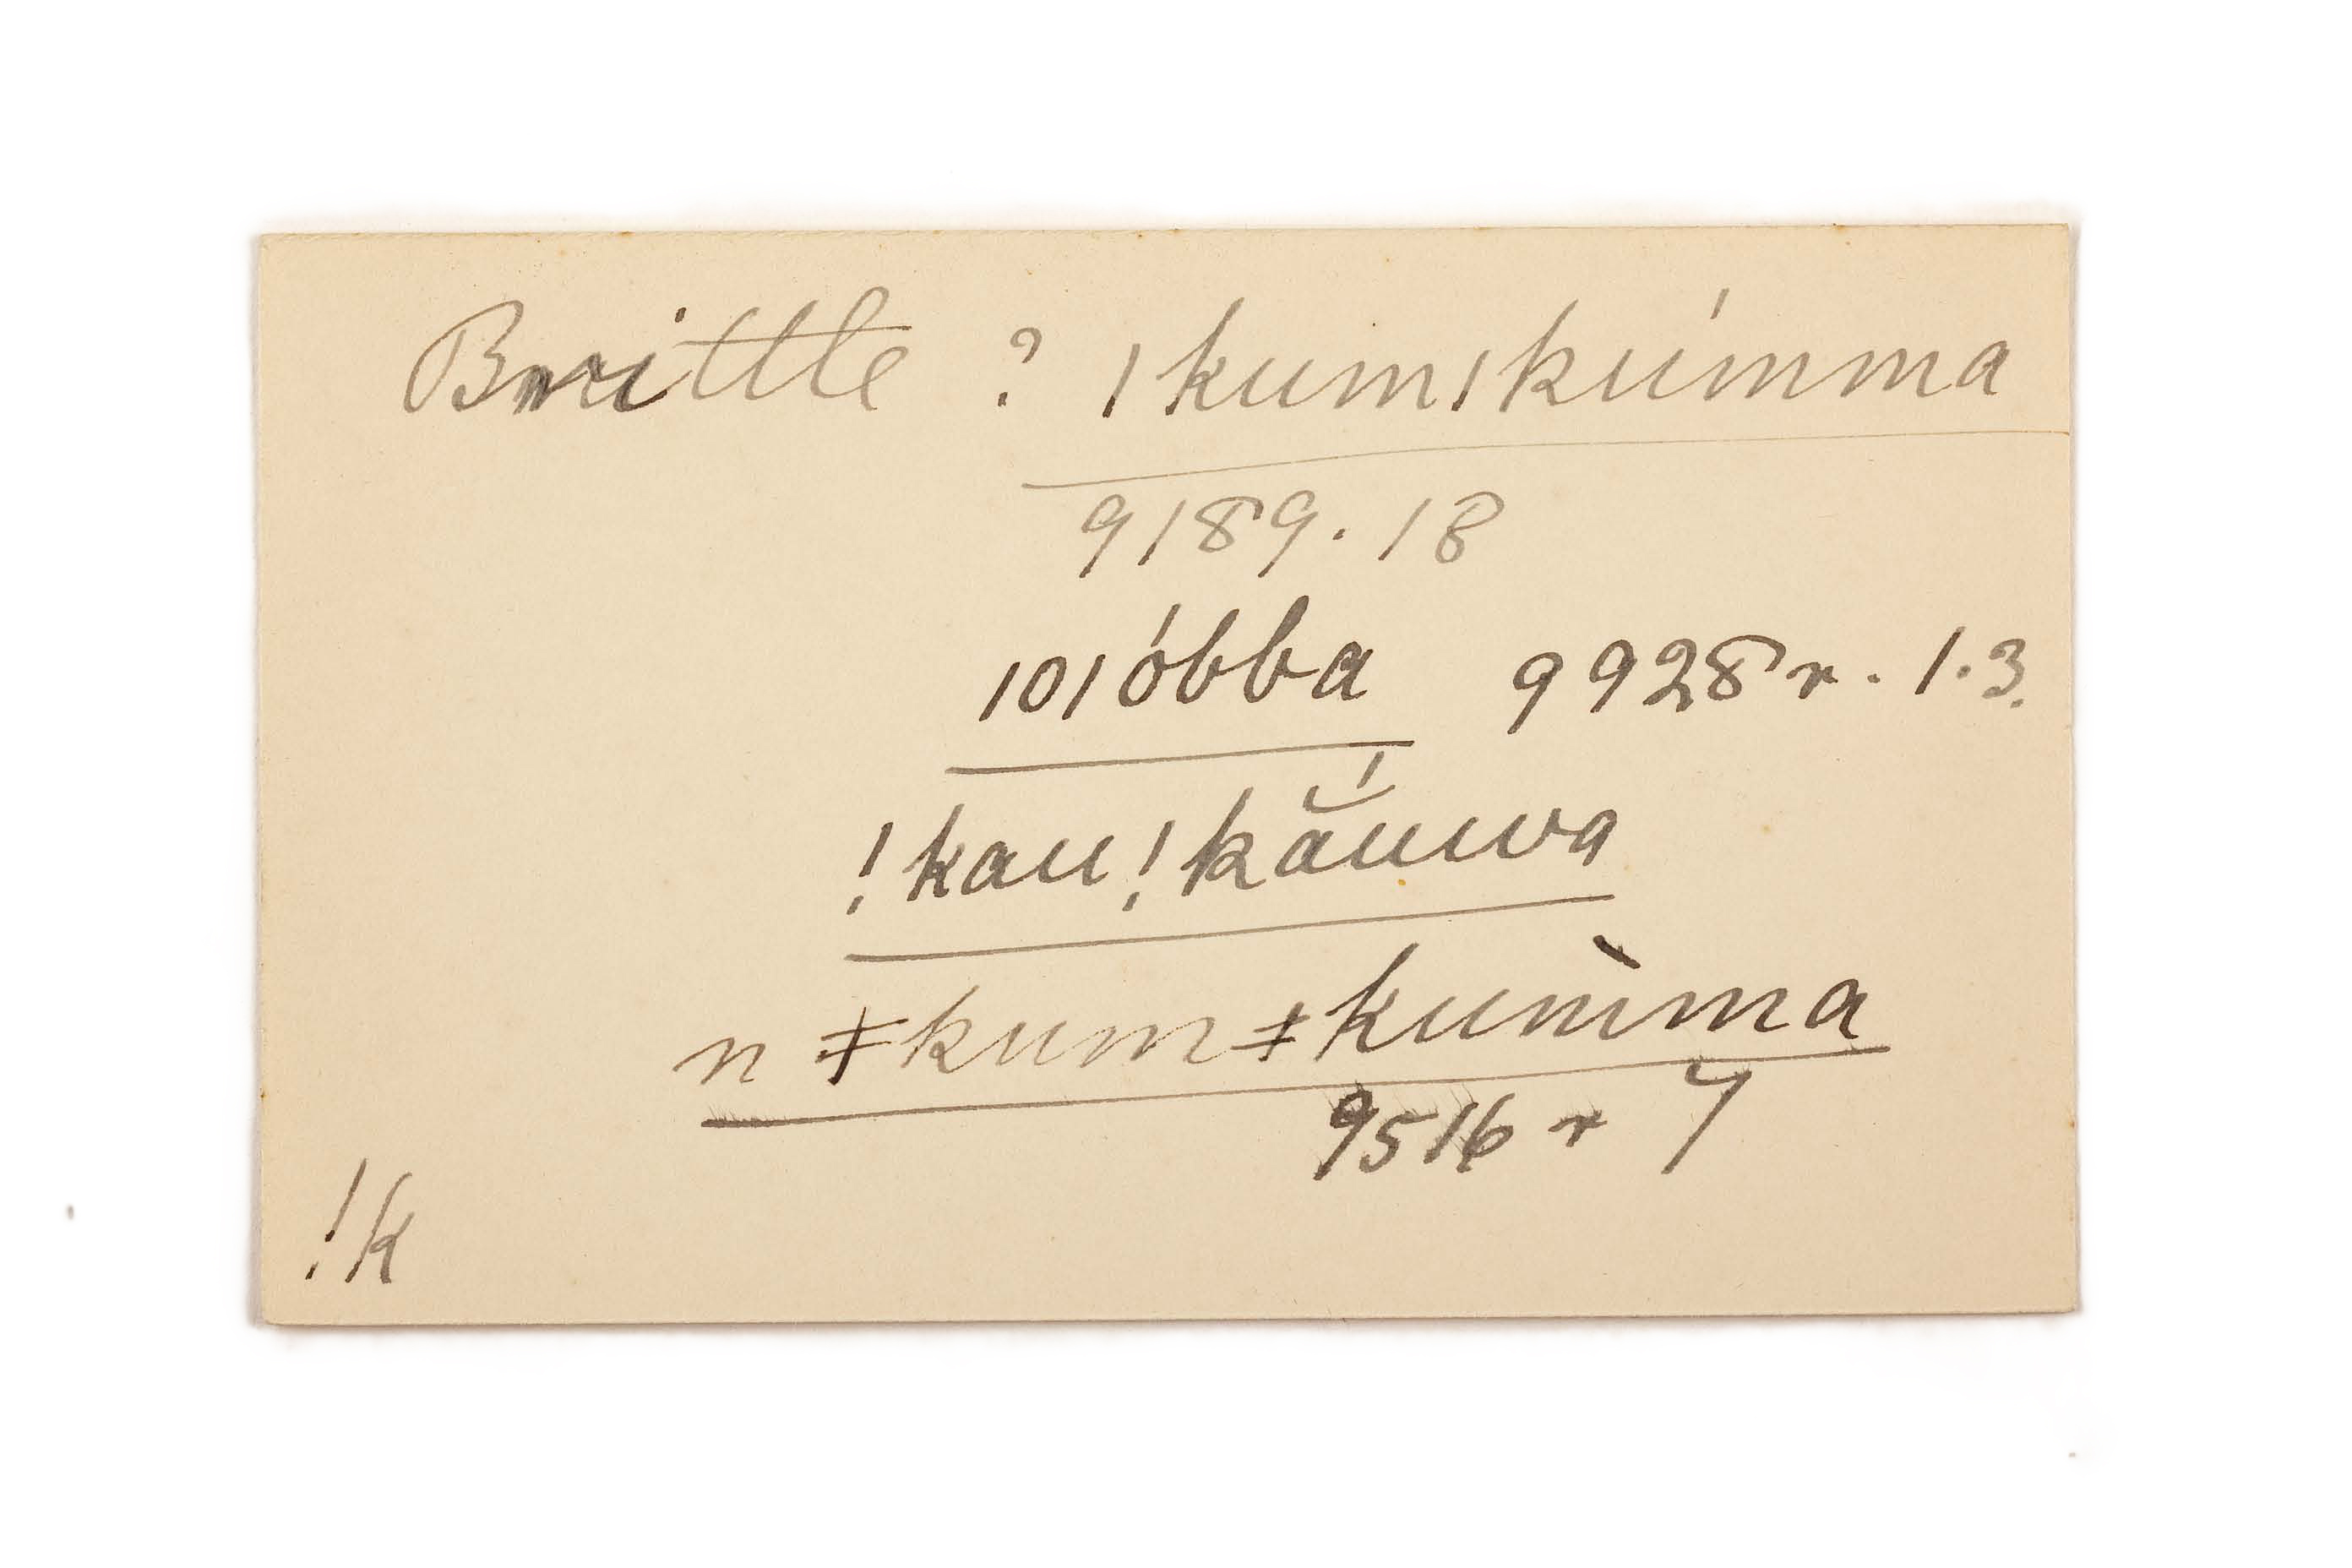 Brittle ? ǀkumǀkúmma
9189.18
ǀoǀóbba 9928 r. 1.3.
!kau!kắuwa
n ǂkumǂkum̀ma
9516 r 7
!k